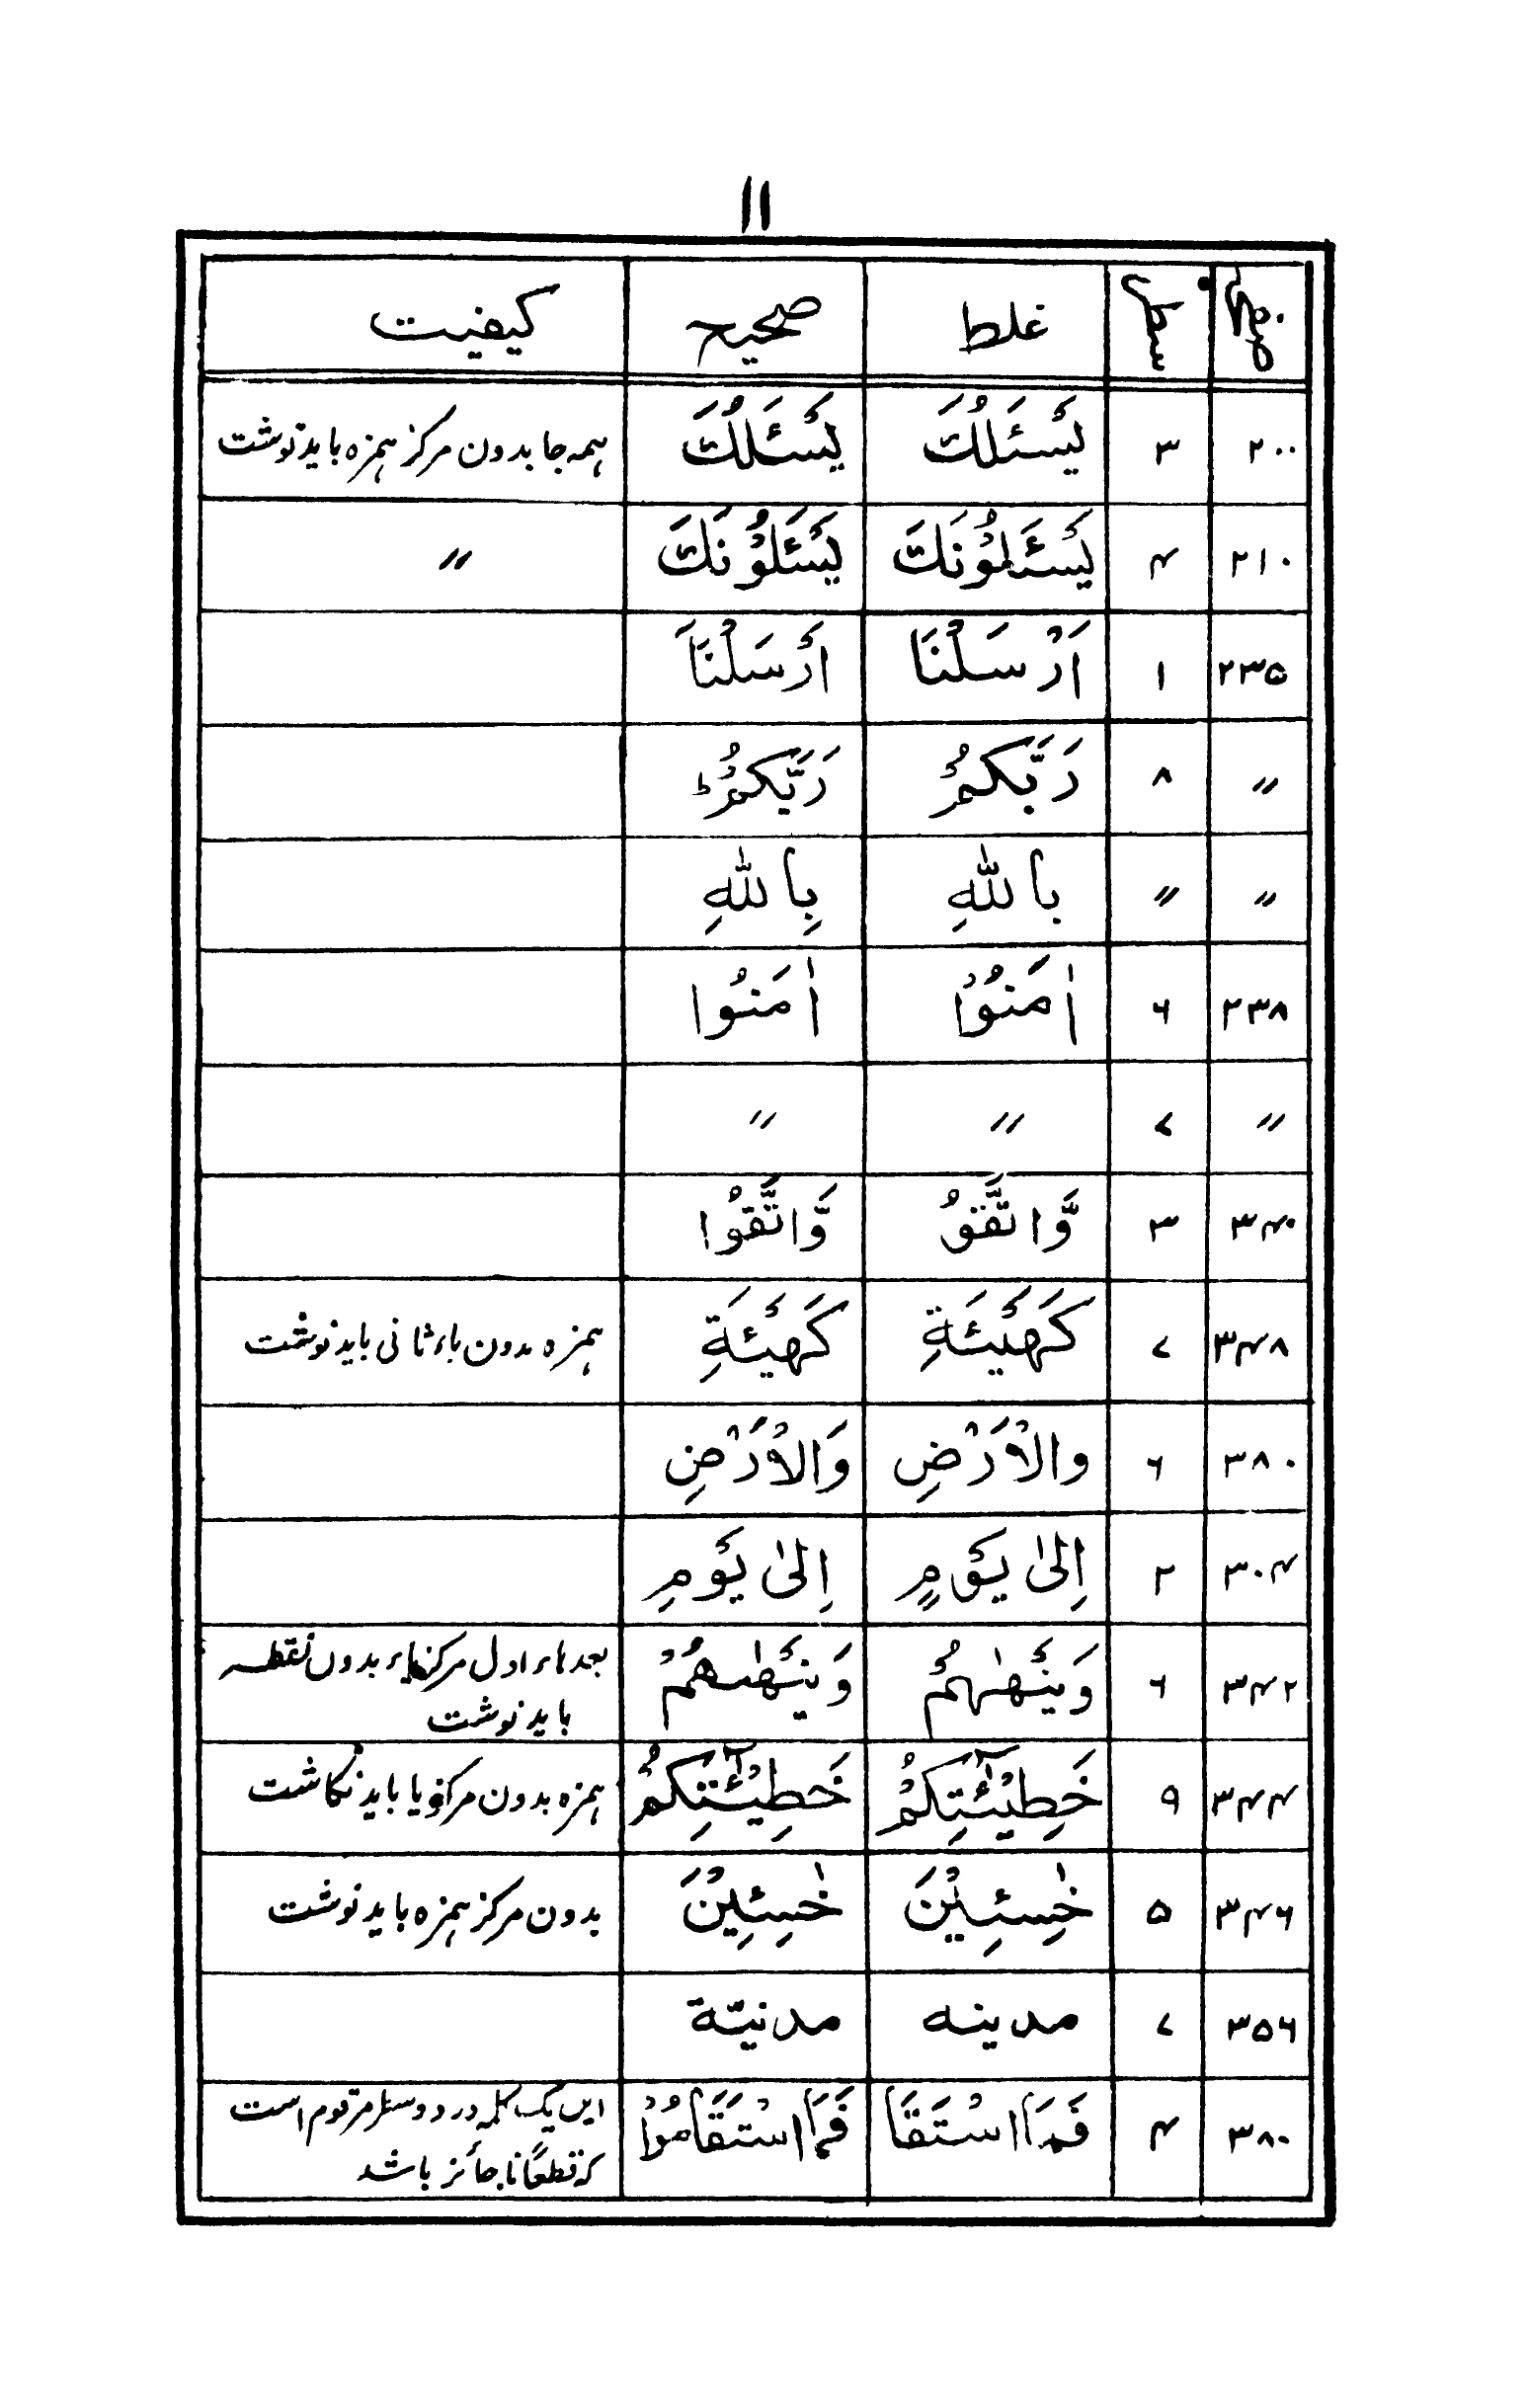 ۱۱
صفحہ سطر غلط صحیح کیفیت
۲۰۰ ۳ یَسْئَلُکَ یَسْئَلُکَ ہمہ جا بدون مرکز ہمزہ باید نوشت
۲۱۰ ۴ یَسْئَلُوْنَکَ یَسْئَلُوْنَکَ "
۲۳۵ ۱ اَرْسَلْنَا اَرْسَلْنَا
" ۸ رَبَّکُمْ رَبِّکُمْ
" " بِاللّٰهِ بِاللّٰهِ
۲۳۸ ۶ اٰمَنُوْا اٰمَنُوا
" ۷ " "
۳۴۰ ۳ وَّاتَّقُ وَّاتَّقُوا
۳۴۸ ۷ کَهَیْئَةِ کَهَیْئَةِ ہمزہ بدون یاء ثانی باید نوشت
۳۸۰ ۶ والْاَرْضِ وَالْاَرْضِ
۳۰۴ ۲ اِلیٰ یَوْمٍ اِلیٰ یَوْمِ
۳۴۲ ۶ وَیَنْهٰهُمْ وَیَنْهٰىهُمْ بعد ہاء اول مرکز یاء بدون نقطہ
باید نوشت
۳۴۴ ۹ خَطِیْٓـٰٔتِکُمْ خَطِیْٓـٰٔتِکُمْ ہمزہ بدون مرکز و یا باید نگاشت
۳۴۶ ۵ خٰسِئِیْنَ خٰسِئِیْنَ بدون مرکز ہمزہ باید نوشت
۳۵۶ ۷ مدینه مدنیّة
۳۸۰ ۴ فَمَااسْتَقَا فَمَااسْتَقَامُوْا ایں یک کلمہ در دو سطر مرقوم است
کہ قطعًا ناجائز باشد